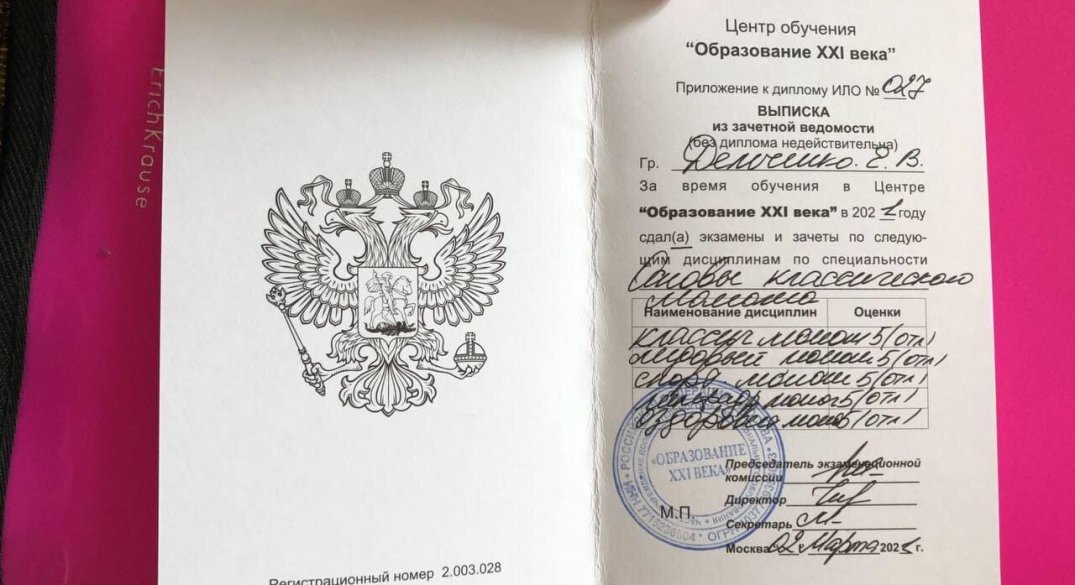 ErichKrause
Регистрационный номер 2.003.028
Центр обучения
“Образование XXI века”
Приложение к диплому ИЛО № 027
ВЫПИСКА
из зачетной ведомости
(без диплома недействительна)
Гр. Е. В.
За время обучения в Центре
“Образование XXI века” в 2021 году
сдал(а) экзамены и зачеты по следую-
щим дисциплинам по специальности
Основы классического
массажа
Наименование дисциплин Оценки
классич массаж 5 (отл)
массаж 5 (отл)
массаж 5 (отл)
5 (отл)
5 (отл)
«ОБРАЗОВАНИЕ
XXI ВЕКА»
Председатель экзаменационной
комиссии
Директор
М.П.
Секретарь
Москва 02 Марта 2021 г.